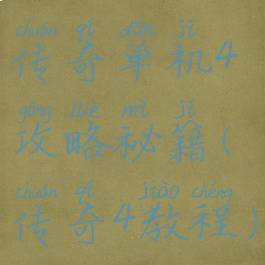 chuán qí dān jī
传奇单机4
gōng lüè mì jí
攻略秘籍(
chuán qí jiào chéng
传奇4教程)